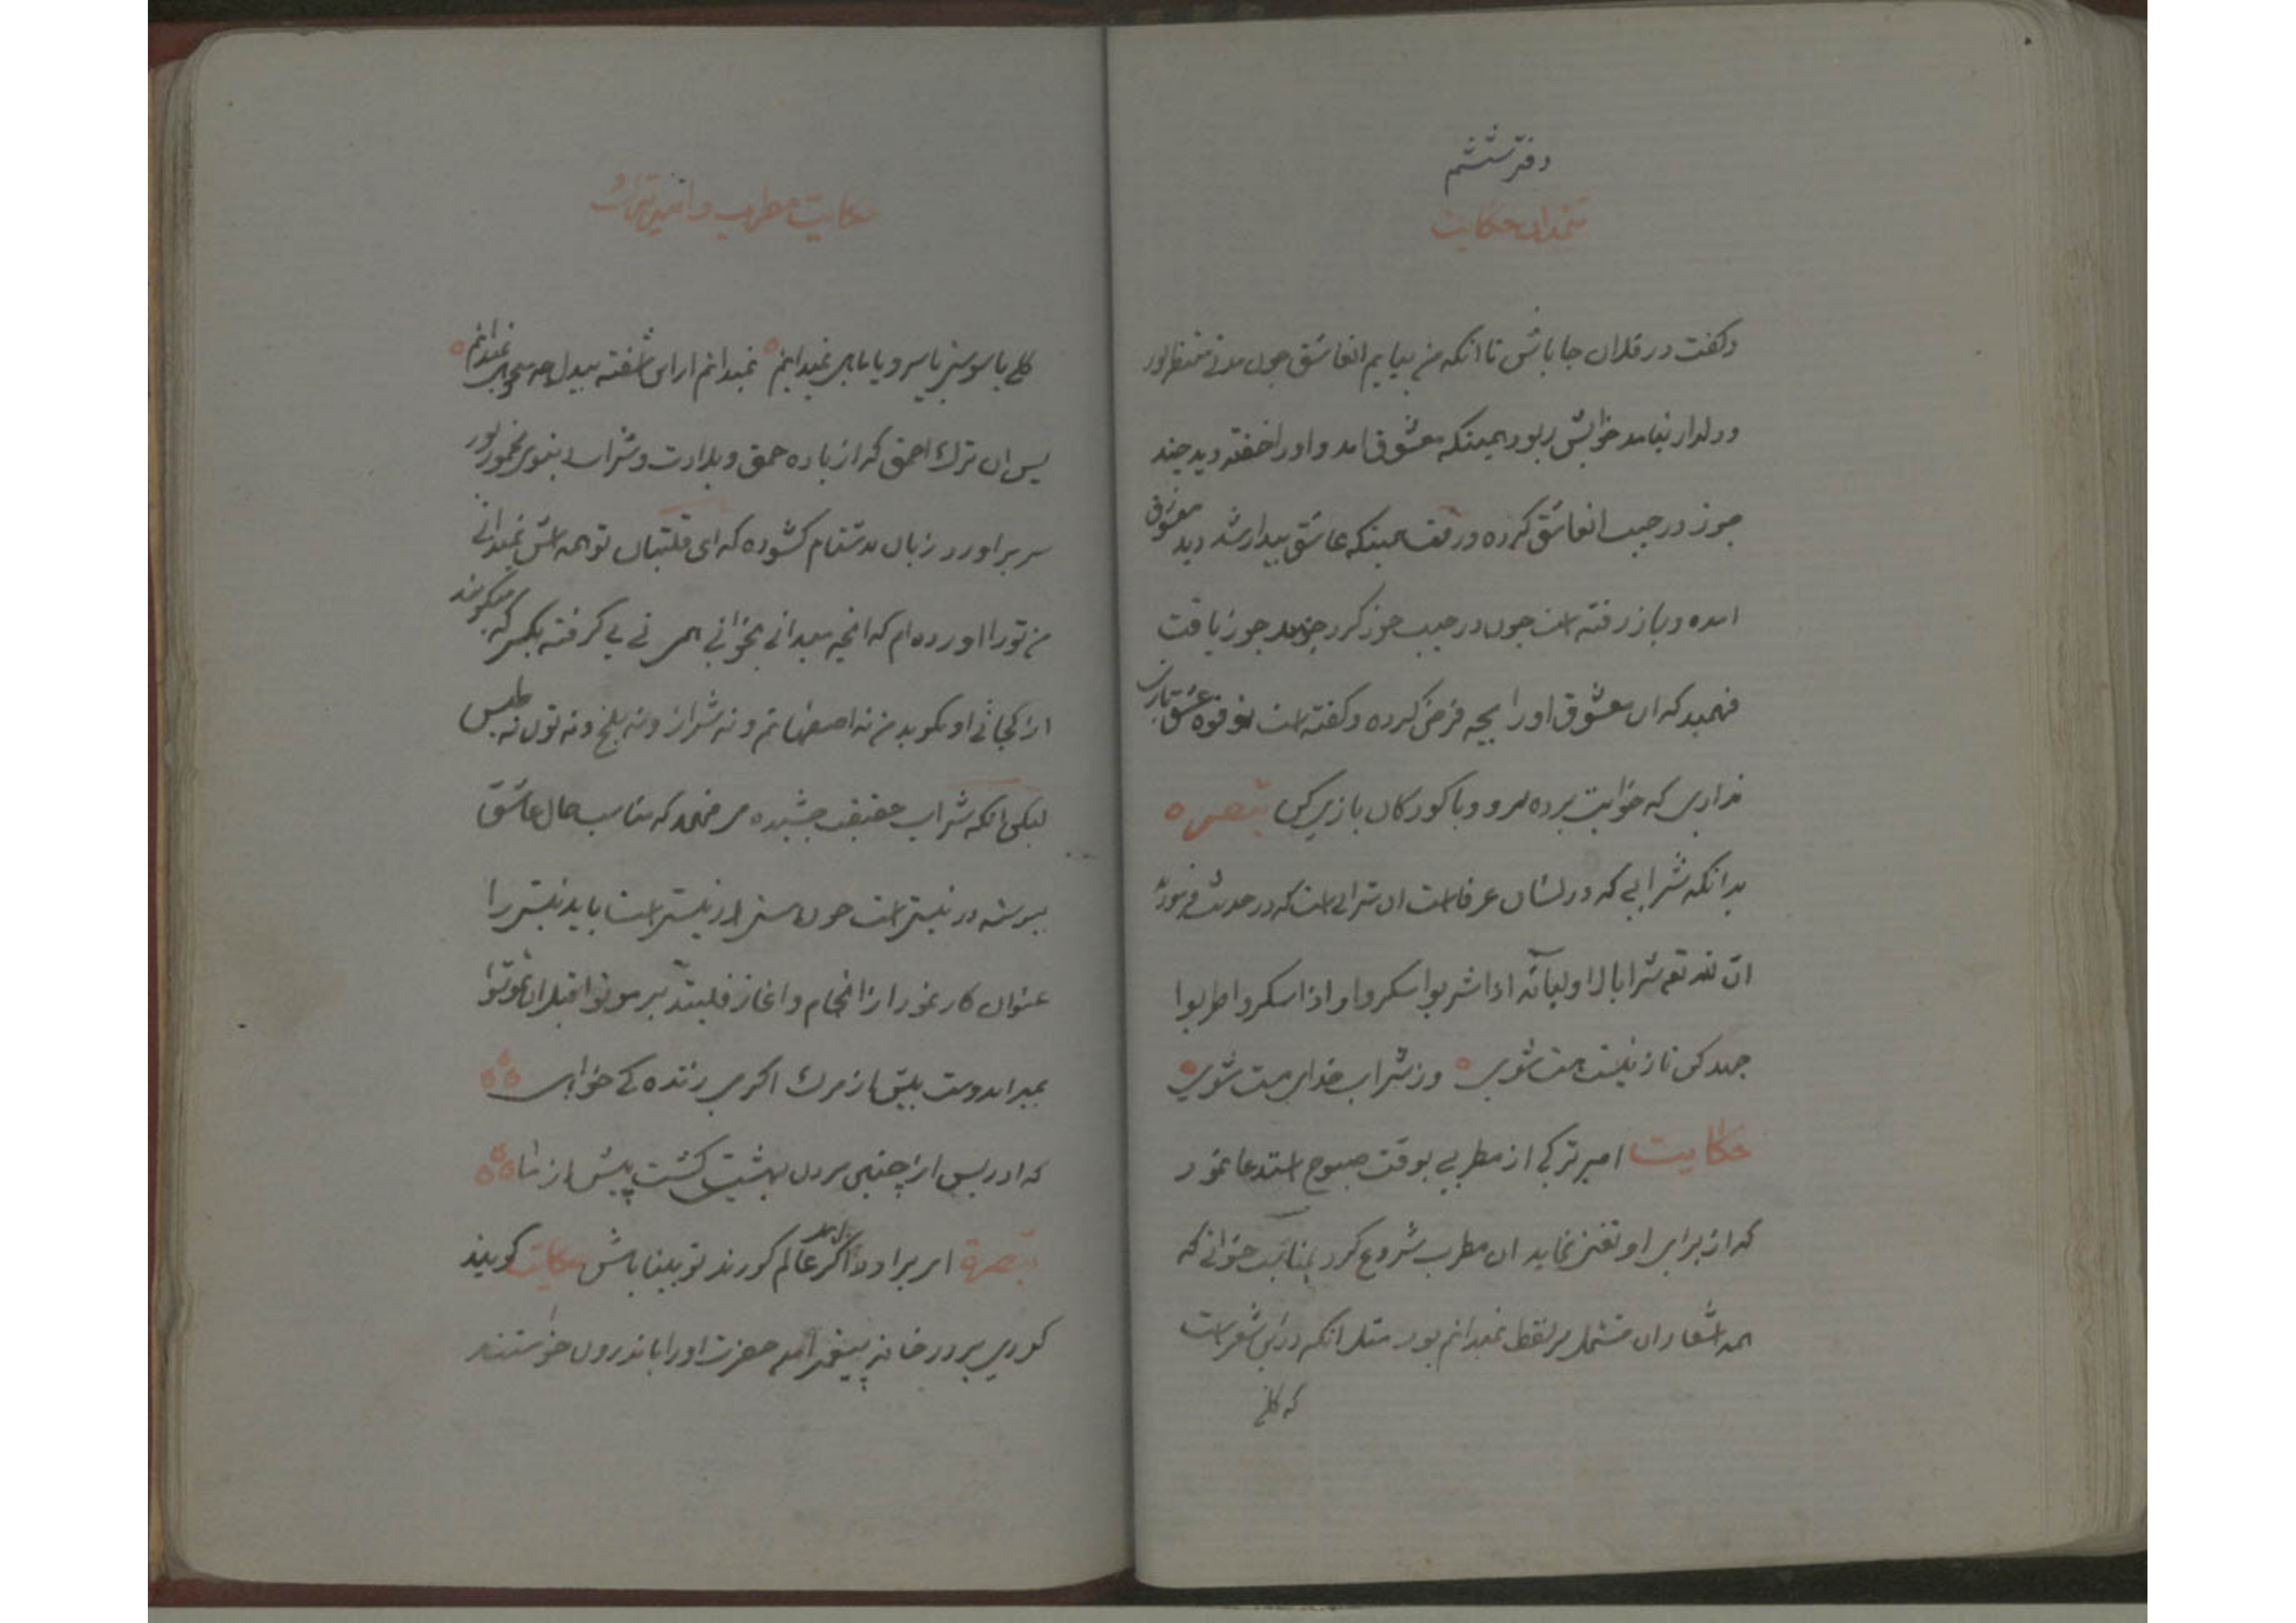 دفتر ششم
تتمه ان حکایت
و گفت در فلان جا باش تا انکه من بیایم انعاشق چون مدتی منتظر بود
و دلدار نیامد خوابش ربود همینکه معشوق امد و او را خفته دید چند
جوز در جیب انعاشق کرده و رفت همینکه عاشق بیدار شد دید معشوق
امده و باز رفته است چون در جیب خود کرد چند جوز یافت
فهمید که ان معشوق او را بچه فرض کرده و گفته است تو قوه عشقبازی
نداری که خوابت برده برو و با کودکان بازی کن تبصره
بدانکه شرابی که در لسان عرفاست ان شرابی است که در حدیث فرمود
ان لله تع شرابا لاولیائه اذا شربوا سکروا و اذا سکروا طربوا
جهد کن تا ز نیست هست شوی وز شراب خدای مست شوی
حکایت امیر ترکی از مطربی بوقت صبوح استدعا نمود
که از برای او تغنی نماید ان مطرب شروع کرد بمناسب خوانی که
همه اشعار ان مشتمل بر لفظ نمیدانم بود مثل انکه در این شعر است
که گلی
حکایت مطرب و امیر ترک
گلی یا سوسنی یا سرو یا ماهی نمیدانم نمیدانم از این اشفته بیدل چه میخواهی نمیدانم
پس ان ترک احمق که از باده حمق و بلادت و شراب دنیوی مخمور بود
سر براورد زبان بدشنام گشوده که ای قلتبان تو همه اش نمیدانی
من تو را اورده ام که انچه میدانی بخوانی همی نی نی گرفته بکسی که میگویند
از کجائی او بگوید من نه اصفهانم و نه شیراز و نه بلخ و نه تون نه طبس
لیکن انکه شراب حقیقت چشیده می فهمد که مناسب حال عاشق
در نیستی است چون هستی در نیستی است باید نیستی را
عنوان کار خود از انجام و اغاز موتوا قبل ان تموتوا
بمیر ایدوست پیش از مرگ اگر می زندگی خواهی
که ادریس از چنین مردن بهشتی گشت پیش از ما
تبصرة ای برادر اگر عالم کورند تو بینا باش حکایت گویند
کوری بر در خانه پیغمبر امد حضرت او را باندرون خواستند